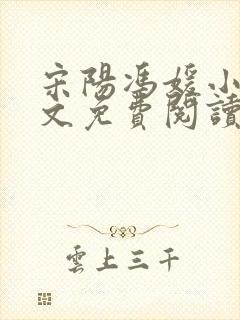 宋陽馮媛小
文免費閱讀
雲上三千